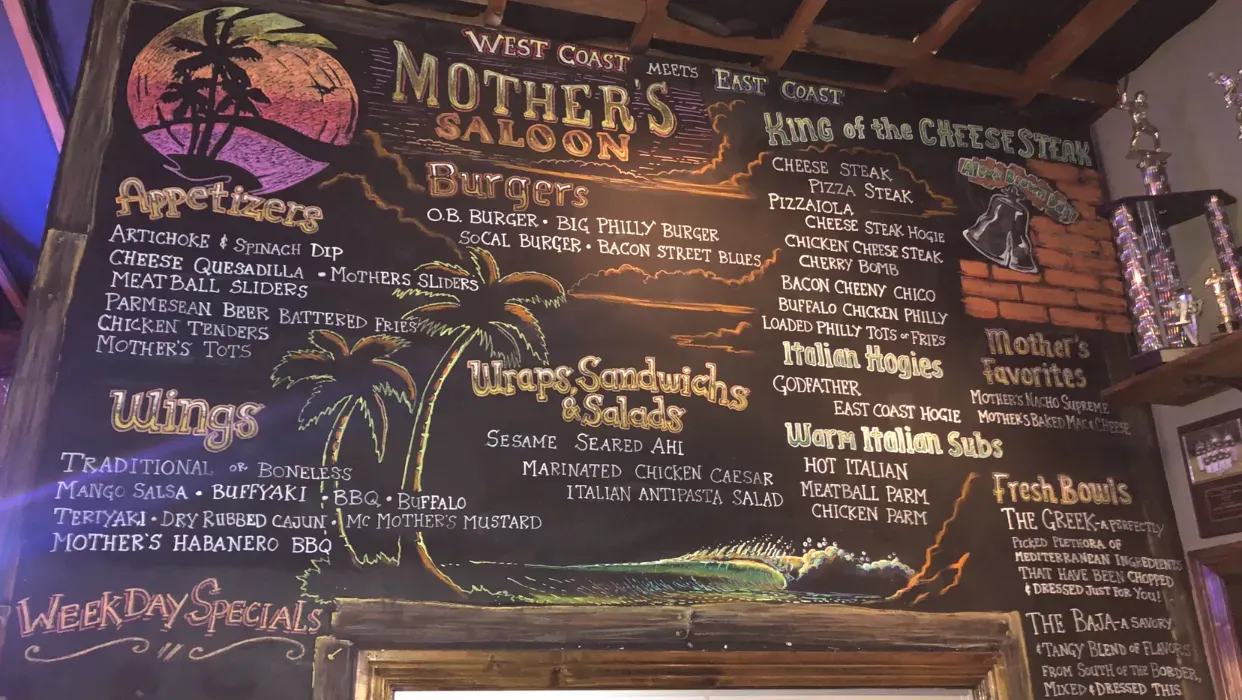 West Coast meets East Coast
Mother's
Saloon
Appetizers
Artichoke & Spinach Dip
Cheese Quesadilla • Mothers Sliders
Meatball Sliders
Parmesean Beer Battered Fries
Chicken Tenders
Mother's Tots
Wings
Traditional or Boneless
Mango Salsa • Buffyaki • BBQ • Buffalo
Teriyaki • Dry Rubbed Cajun • Mc Mother's Mustard
Mother's Habanero BBQ
WeekDay Specials
Burgers
O.B. Burger • Big Philly Burger
SoCal Burger • Bacon Street Blues
Wraps, Sandwichs
& Salads
Sesame Seared Ahi
Marinated Chicken Caesar
Italian Antipasta Salad
King of the CheeseSteak
Cheese Steak
Pizza Steak
Pizzaiola
Cheese Steak Hogie
Chicken Cheese Steak
Cherry Bomb
Bacon Cheeny Chico
Buffalo Chicken Philly
Loaded Philly Tots or Fries
Italian Hogies
Godfather
East Coast Hogie
Warm Italian Subs
Hot Italian
Meatball Parm
Chicken Parm
Mother's
Favorites
Mother's Nacho Supreme
Mother's Baked Mac & Cheese
Fresh Bowls
The Greek - a perfectly
picked plethora of
Mediterranean Ingredients
that have been chopped
& dressed just for you!
The Baja - a savory
& tangy blend of flavors
from South of the Border,
mixed & dressed this